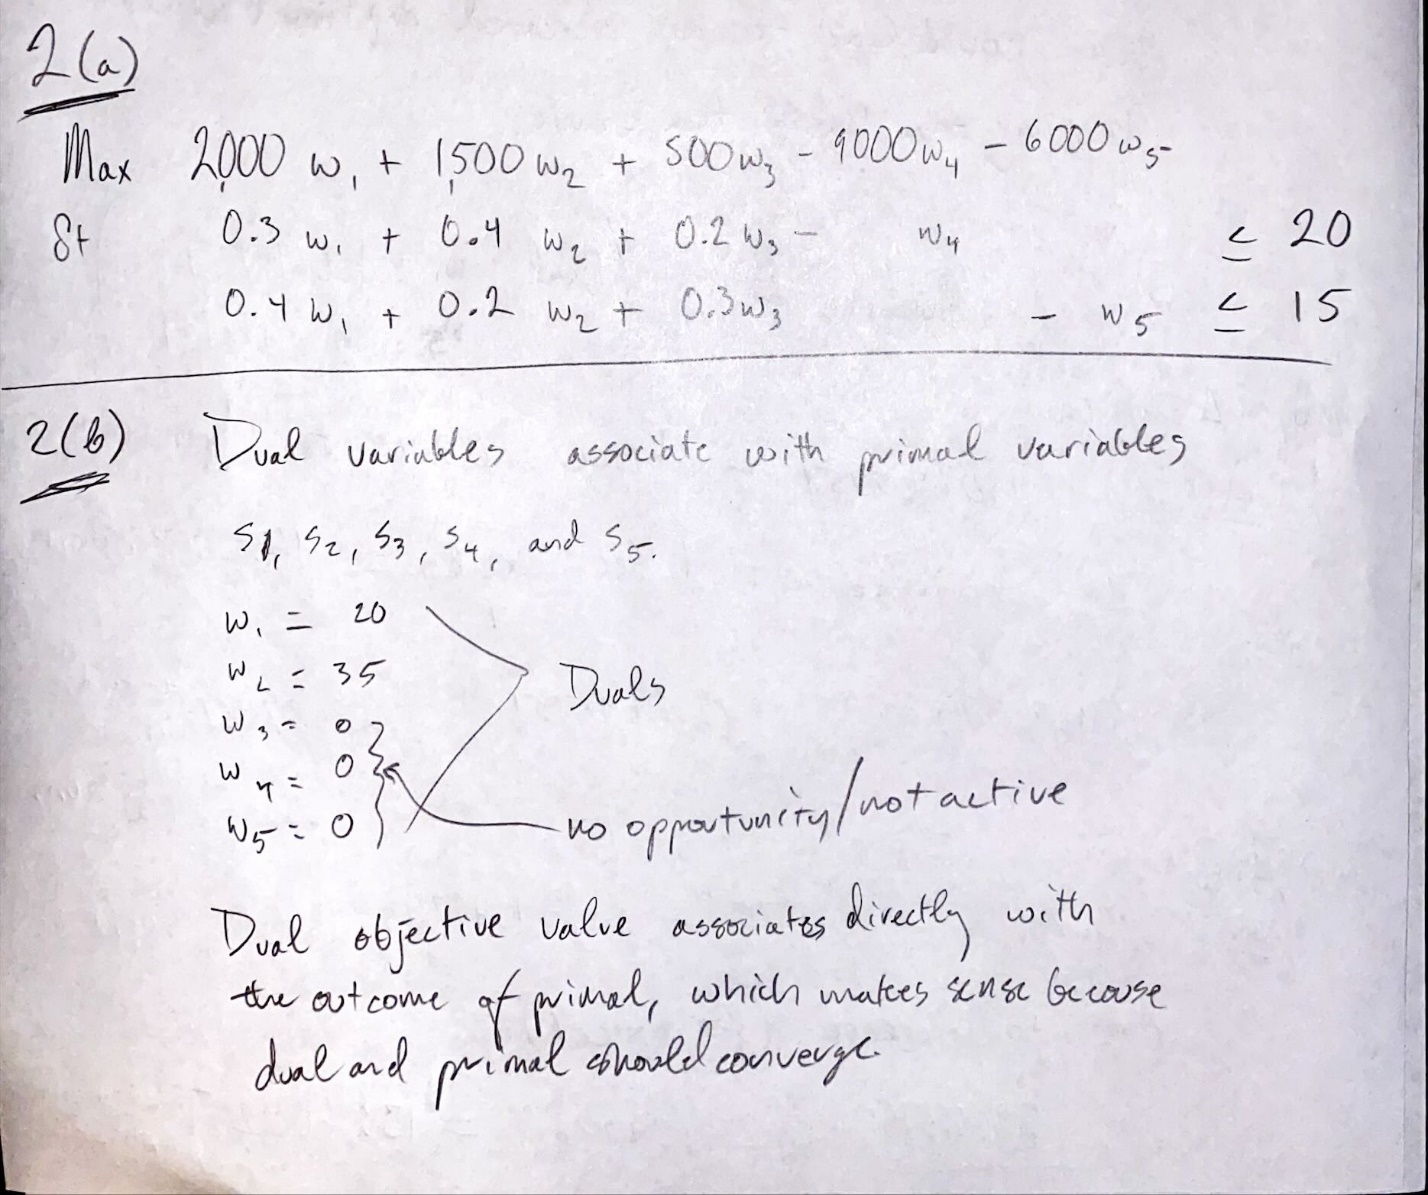 2(a)
Max 2,000 w₁ + 1,500 w₂ + 500 w₃ - 9000 w₄ - 6000 w₅
St 0.3 w₁ + 0.4 w₂ + 0.2 w₃ - w₄ ≤ 20
0.4 w₁ + 0.2 w₂ + 0.3 w₃ - w₅ ≤ 15
2(b) Dual variables associate with primal variables
S₁, S₂, S₃, S₄, and S₅.
w₁ = 20
w₂ = 35
Duals
w₃ = 0
w₄ = 0
w₅ = 0
no opportunity/not active
Dual objective value associates directly with
the outcome of primal, which makes sense because
dual and primal should converge.